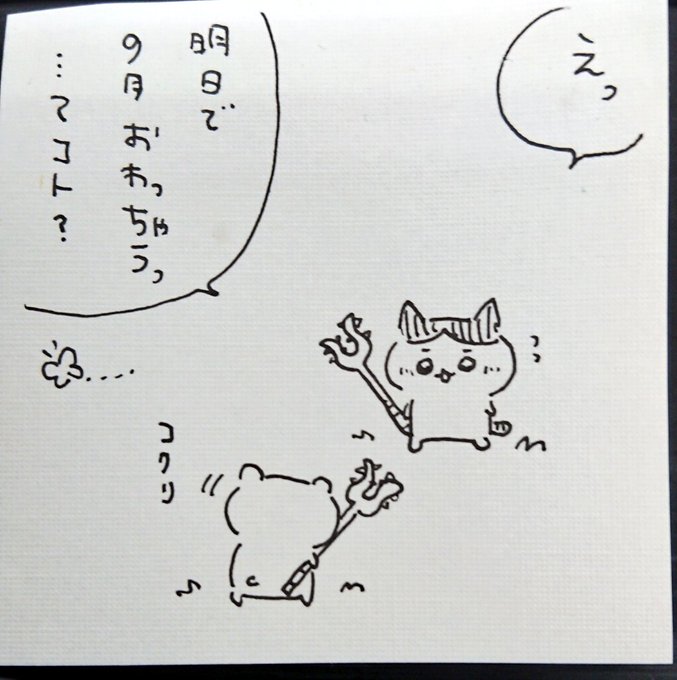 えっ
明日で
9月おわっちゃうっ
…てコト?
コクリ